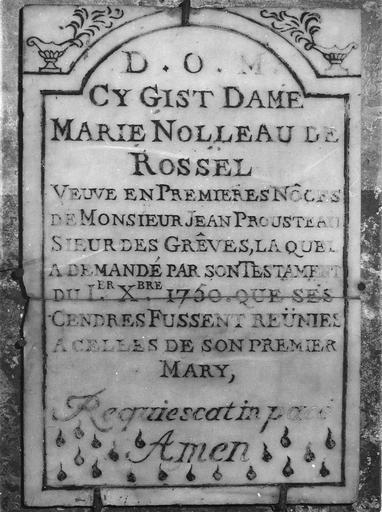 D. O. M.
CY GIST DAME
MARIE NOLLEAU DE
ROSSEL
VEUVE EN PREMIERES NÔCES
DE MONSIEUR JEAN PROUSTEAU
SIEUR DES GRÊVES, LA QUEL
A DEMANDÉ PAR SON TESTAMENT
DU I.ER X.BRE 1750. QUE SES
CENDRES FUSSENT REÜNIES
A CELLES DE SON PREMIER
MARY,
Requiescat in pace
Amen